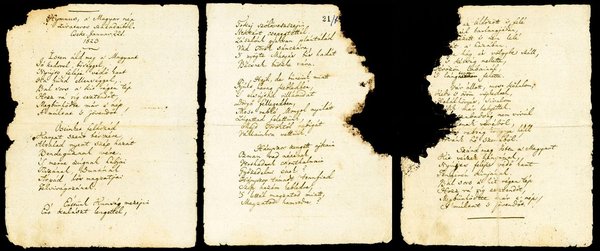 Hymnus, a Magyar nép
zivataros századaiból.
Cseke Januar. 22d.
1823
Isten áldd meg a Magyart
Jó kedvvel, bőséggel,
Nyújts feléje védő kart
Ha küzd ellenséggel;
Bal sors a kit régen tép
Hozz rá víg esztendőt,
Megbűnhödte már e nép
A múltat s jövendőt!
Őseinket felhozád
Kárpát szent bérczére,
Általad nyert szép hazát
Bendegúznak vére.
S merre zúgnak habjai
Tiszának, Dunának
Árpád hős magzatjai
Felvirágozának.
Értünk Kunság mezein
Ért kalászt lengettél,
Tokaj szőlővesszein
Nektárt csepegtettél.
Zászlónk gyakran plántálád
Vad török sánczára,
S nyögte Mátyás bús hadát
Bécsnek büszke vára.
Hajh, de bűneink miatt
Gyúlt harag kebledben,
S elsújtád villámidat
Dörgő fellegedben,
Most rabló Mongol nyilát
Zúgattad felettünk,
Majd töröktől rabigát
Vállainkra vettünk.
Hányszor zengett ajkain
Ozman vad népének
Vert hadunk csonthalmain
Győzedelmi ének!
Hányszor támadt tenfiad
Szép hazám kebledre,
S lettél magzatod miatt
Magzatod hamvvedre?
az üldözött s felé
barlangjában,
s nem lelé
a hazában,
hág és völgybe száll,
s kétség mellette,
lábainál,
S lángtenger felette.
Vár állott, most kőhalom,
s öröm röpkedtek,
siralom
helyettek.
szabadság nem virúl
véréből,
rabság könnye hull
szeméből!
Szánd meg Isten a Magyart
Kit vészek hányának,
Nyújts feléje védő kart
Tengerén kínjának.
Bal sors a kit régen tép
Hozz rá víg esztendőt,
Megbűnhödte már e nép
A múltat s jövendőt!